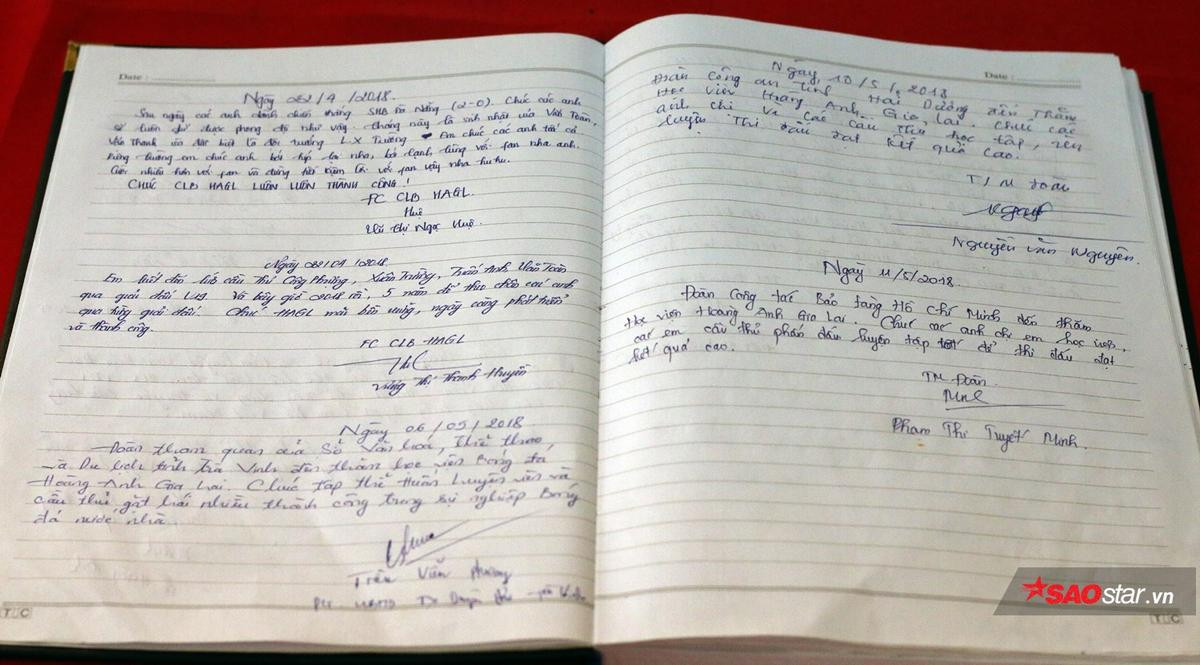 Date :
Ngày 282/4/2018.
Sau ngày các anh dành chiến thắng SHB Đà Nẵng (2-0). Chúc các anh
sẽ luôn giữ được phong độ như vậy. tháng này là sinh nhật của Văn Toàn,
Văn Thanh và đặc biệt là đội trưởng L.X Trường Em chúc các anh tất cả
em chúc anh bớt lại nha, bớt lạnh lùng với fan nha anh.
Cười nhiều hơn với fan và đừng kiệm lời với fan vậy nha hu hu.
CHÚC CLB HAGL LUÔN LUÔN THÀNH CÔNG!
FC CLB HAGL.
Huệ
Vũ Thị Ngọc Huệ.
Ngày 282/04/2018.
Em biết đến cầu thủ Công Phượng, Xuân Trường, Tuấn Anh, Văn Toàn
qua giải đấu U19. Và bây giờ 2018 rồi, 5 năm để theo chân các anh
qua từng giải đấu. Chúc HAGL mãi bền vững, ngày càng phát triển
và thành công.
FC CLB-HAGL
Thị Thanh Huyền
Ngày 06/05/2018
Đoàn tham quan của Sở Văn hoá, Thể thao,
và Du lịch tỉnh Trà Vinh đến thăm học viện Bóng đá
Hoàng Anh Gia Lai. Chúc tập thể Huấn luyện viên và
cầu thủ gặt hái nhiều thành công trong sự nghiệp Bóng
đá nước nhà.
Trần Viễn Phương
TLC
Date :
Ngày 10/5/2018
Đoàn Công an Tỉnh Hải Dương đến Thăm
Học viện Hoàng Anh Gia Lai. Chúc các
anh chị và các cầu thủ học tập, rèn
luyện thi đấu đạt kết quả cao.
T/M Đoàn
Nguyễn Văn Nguyên.
Ngày 11/5/2018.
Đoàn Công tác Bảo tàng Hồ Chí Minh đến thăm
Học viện Hoàng Anh Gia Lai. Chúc các anh chị em học viên,
các em cầu thủ phấn đấu luyện tập tốt để thi đấu đạt
kết quả cao.
TM Đoàn
Phạm Thị Tuyết Minh.
SAOstar.vn
TLC